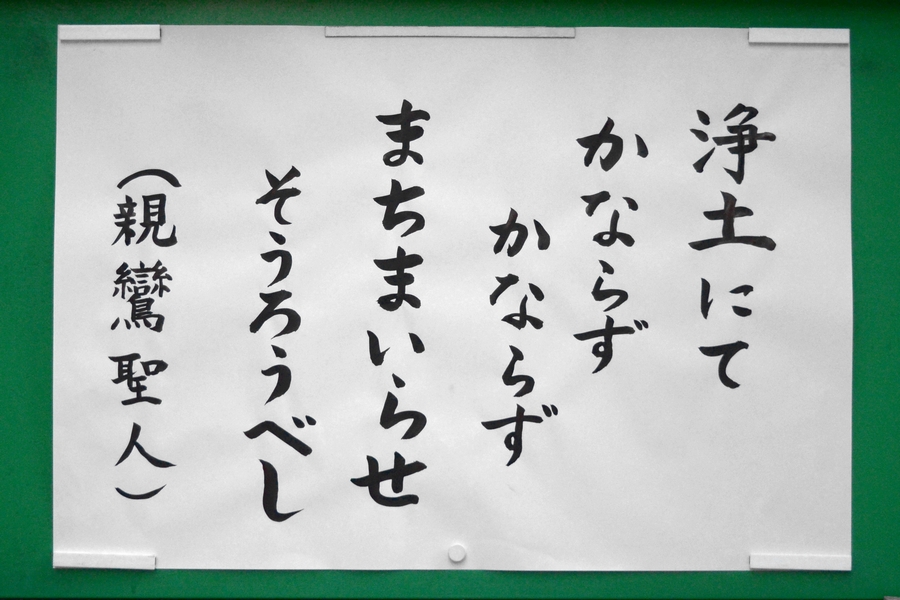 浄土にて
かならず
かならず
まちまいらせ
そうろうべし
(親鸞聖人)